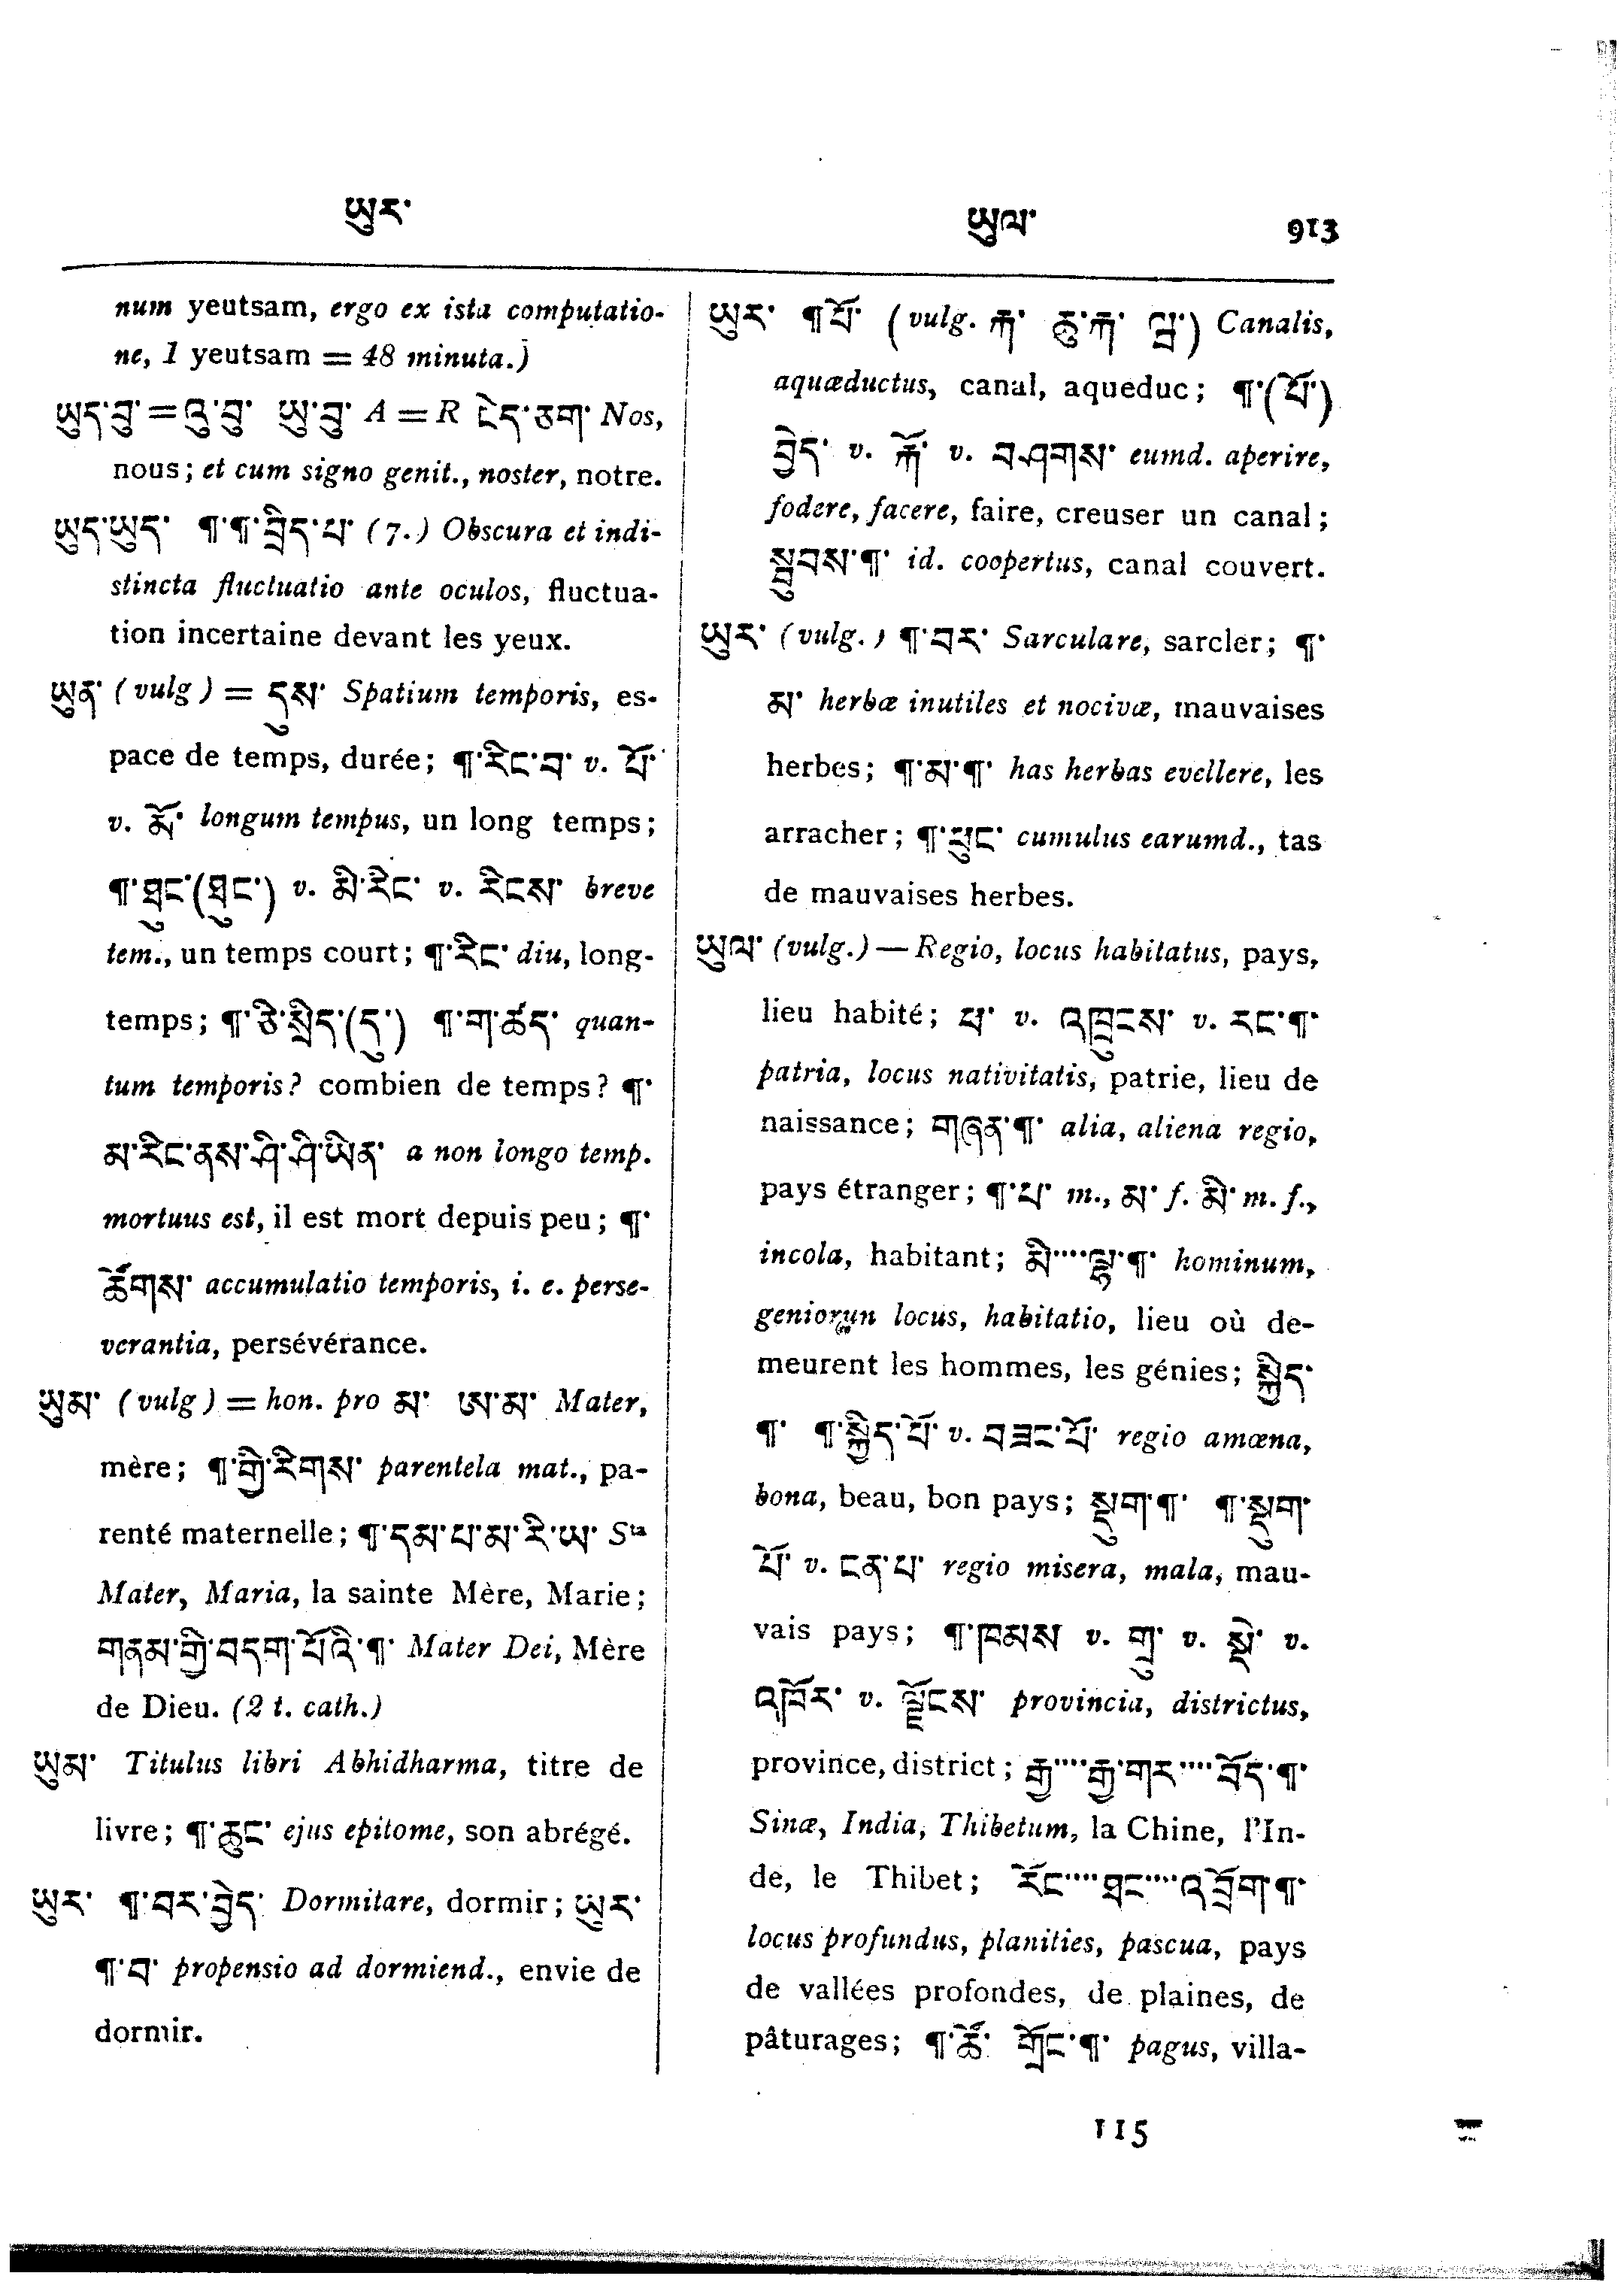 ཡུར་ ཡུལ་ 913
num yeutsam, ergo ex ista computatio-
ne, 1 yeutsam = 48 minuta.)
ཡུད་བུ་ = འུ་བུ་ ཡུ་བུ་ A = R ངེད་ཅག་ Nos,
nous; et cum signo genit., noster, notre.
ཡུད་ཡུད་ ¶་¶་བྲིད་པ་ (7.) Obscura et indi-
stincta fluctuatio ante oculos, fluctua-
tion incertaine devant les yeux.
ཡུན་ (vulg) = དུས་ Spatium temporis, es-
pace de temps, durée; ¶་རིང་བ་ v. པོ་
v. མོ་ longum tempus, un long temps;
¶་ཐུང་(ཐུང་) v. མི་རིང་ v. རིངས་ breve
tem., un temps court; ¶་རིང་ diu, long-
temps; ¶་ཅི་སྲིད་(དུ་) ¶་ག་ཚད་ quan-
tum temporis? combien de temps? ¶་
མ་རིང་ནས་ཤི་ཤི་ཡིན་ a non longo temp.
mortuus est, il est mort depuis peu; ¶་
ཚོགས་ accumulatio temporis, i. e. perse-
verantia, persévérance.
ཡུམ་ (vulg) = hon. pro མ་ ཨ་མ་ Mater,
mère; ¶་གྱི་རིགས་ parentela mat., pa-
renté maternelle; ¶་དམ་པ་མ་རི་ཡ་ Sta
Mater, Maria, la sainte Mère, Marie;
གནམ་གྱི་བདག་པོའི་¶་ Mater Dei, Mère
de Dieu. (2 t. cath.)
ཡུམ་ Titulus libri Abhidharma, titre de
livre; ¶་ཆུང་ ejus epitome, son abrégé.
ཡུར་ ¶་བར་བྱེད་ Dormitare, dormir; ཡུར་
¶་བ་ propensio ad dormiend., envie de
dormir.
ཡུར་ ¶པོ་ (vulg. རྐ་ ཆུ་རྐ་ ) Canalis,
aquæductus, canal, aqueduc; ¶་(པོ་)
བྱེད་ v. རྐོ་ v. བཤགས་ eumd. aperire,
fodere, facere, faire, creuser un canal;
སྦུབས་¶་ id. coopertus, canal couvert.
ཡུར་ (vulg.) ¶་བར་ Sarculare, sarcler; ¶་
མ་ herbæ inutiles et nocivæ, mauvaises
herbes; ¶་མ་¶་ has herbas evellere, les
arracher; ¶་ཕུང་ cumulus earumd., tas
de mauvaises herbes.
ཡུལ་ (vulg.) — Regio, locus habitatus, pays,
lieu habité; ཕ་ v. འཁྲུངས་ v. རང་¶་
patria, locus nativitatis, patrie, lieu de
naissance; གཞན་¶་ alia, aliena regio,
pays étranger; ¶་པ་ m., མ་ f. མི་ m. f.,
incola, habitant; མི་····ལྷ་¶་ hominum,
geniorun locus, habitatio, lieu où de-
meurent les hommes, les génies; སྐྱིད་
¶་ ¶་སྐྱིད་པོ་ v. བཟང་པོ་ regio amœna,
bona, beau, bon pays; སྡུག་¶་ ¶་སྡུག་
པོ་ v. ངན་པ་ regio misera, mala, mau-
vais pays; ¶་ཁམས v. གྲུ་ v. སྡེ་ v.
འཁོར་ v. ལྗོངས་ provincia, districtus,
province, district; རྒྱ་····རྒྱ་གར་····བོད་¶་
Sinæ, India, Thibetum, la Chine, l'In-
de, le Thibet; རོང་····ཐང་····འབྲོག་¶་
locus profundus, planities, pascua, pays
de vallées profondes, de plaines, de
pâturages; ¶་ཚོ་ གྲོང་¶་ pagus, villa-
115